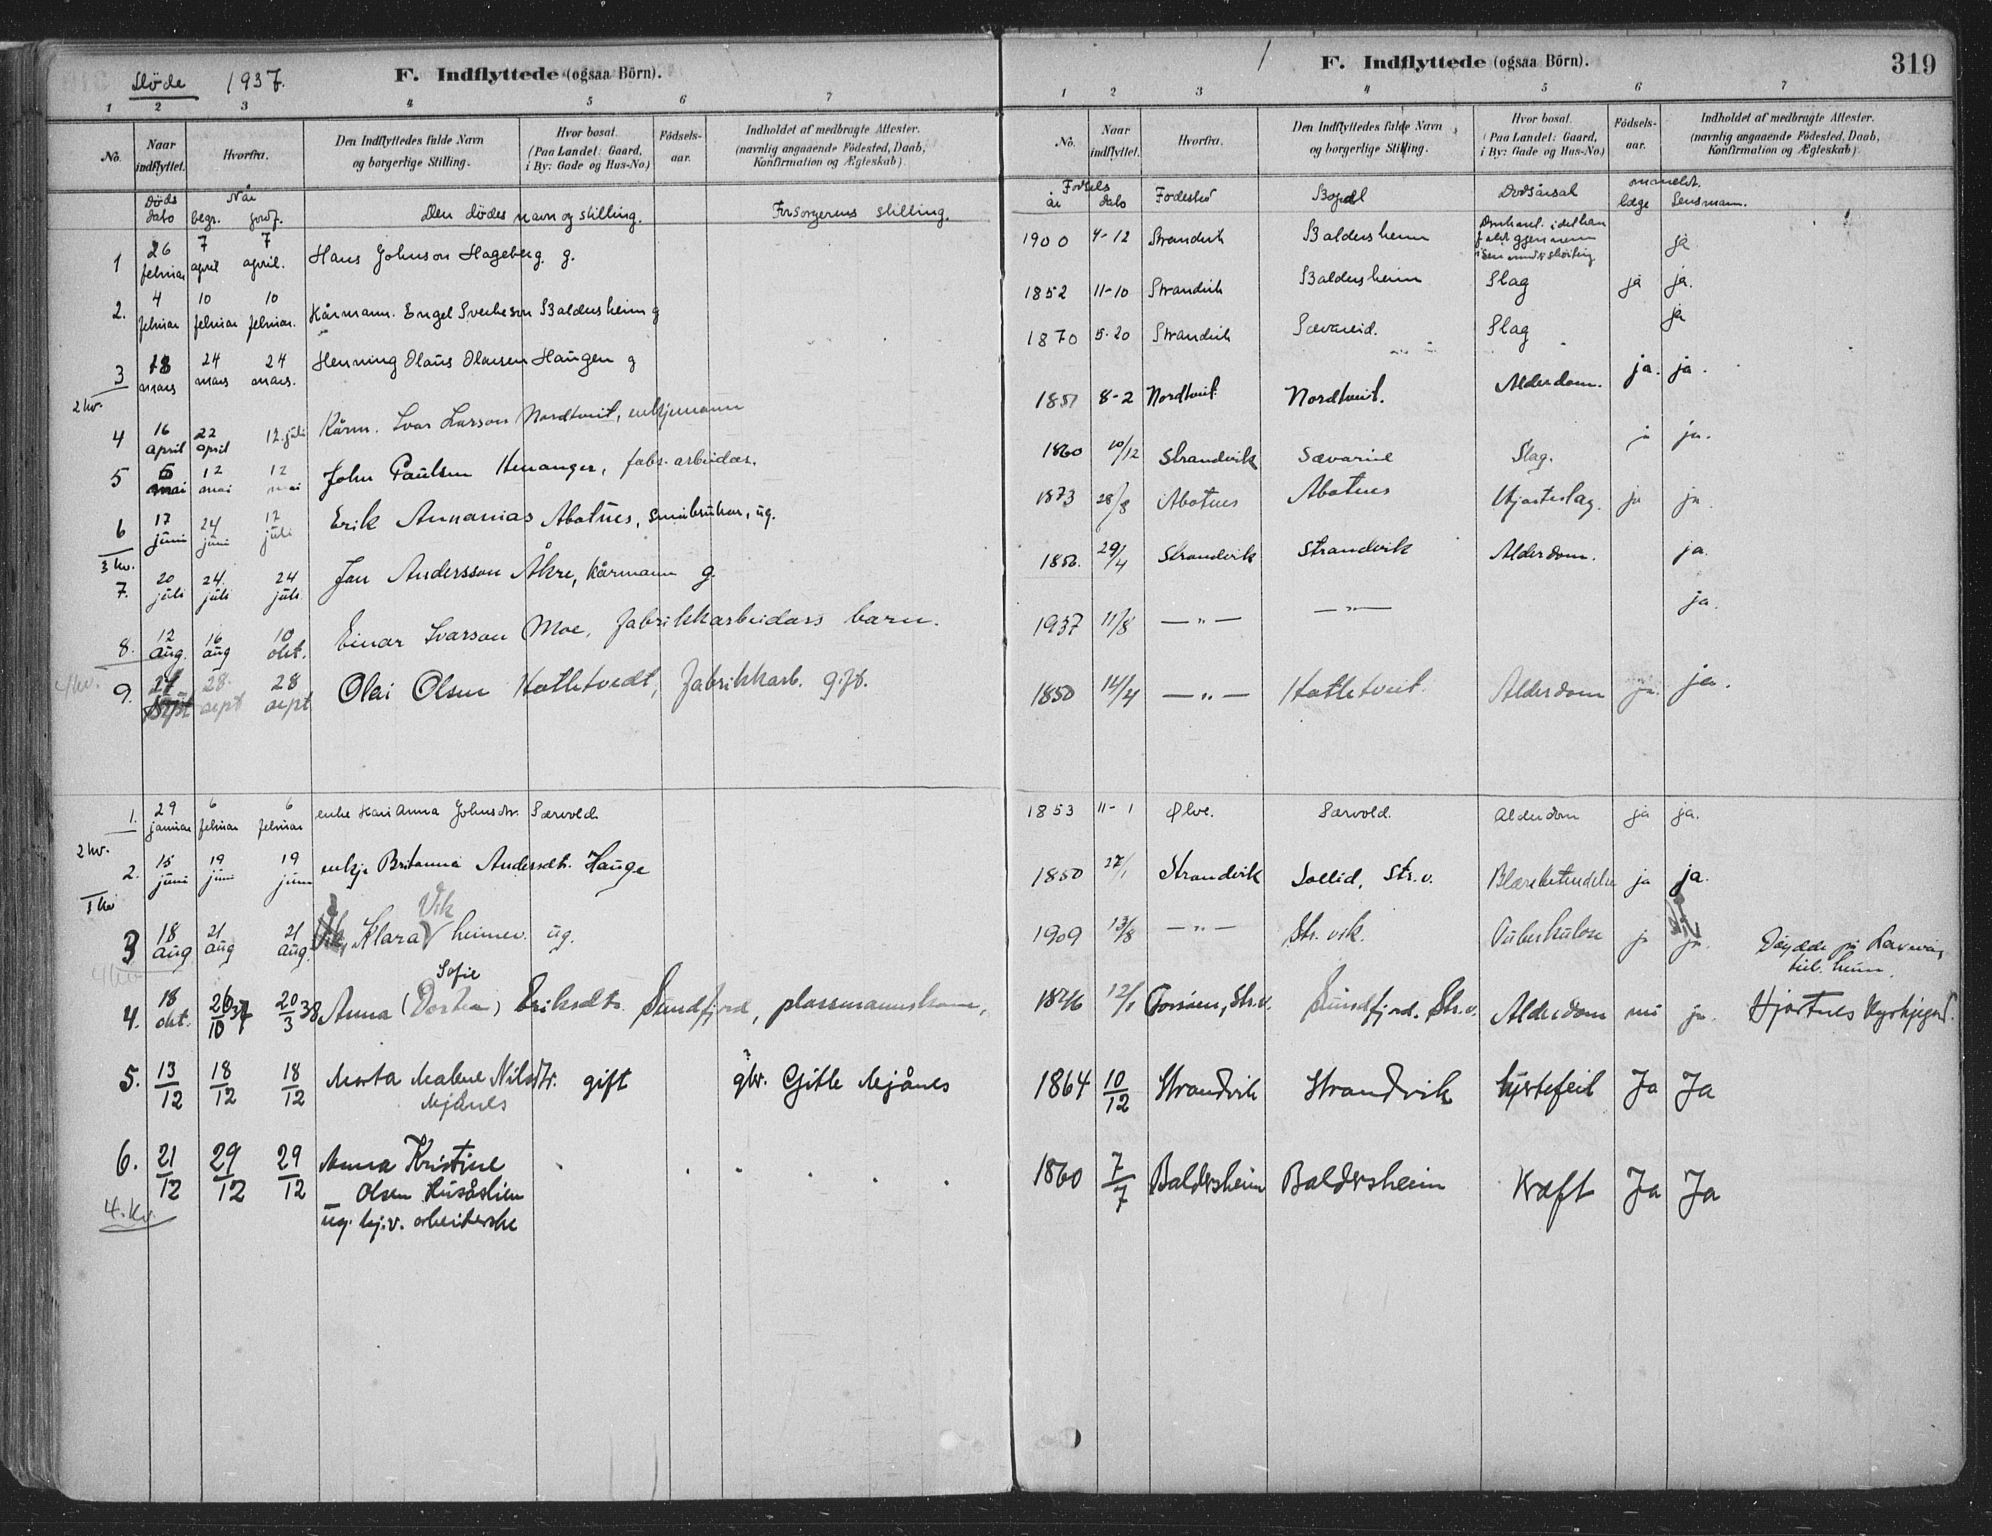 Døde 1937.
F. Indflyttede (ogsaa Börn).
1 2 3 4 5 6 7
No.
Naar indflyttet.
Hvorfra.
Den Indflyttedes fulde Navn og borgerlige Stilling.
Hvor bosat. (Paa Landet: Gaard, i By: Gade og Hus-No.)
Födsels-aar.
Indholdet af medbragte Attester. (navnlig angaaende Födested, Daab, Konfirmation og Ægteskab).
Døds dato
Når
begr. jordf.
Den dødes navn og stilling.
Forsørgerens stilling.
1 26 februar 7 april 7 april. Hans Johnson Hageberg. g.
2. 4 februar 10 februar 10 februar. Kårmann. Engel Sverkeson Baldersheim g
3 18 mars 24 mars 24 mars. Henning Olaus Olausen Haugen g
2 kv.
4 16 april 22 april 12. juli Kårm. Ivar Larson Nordtveit, enkjemann
5 5 mai 12 mai 12 mai John Paulsen Henanger, fabr. arbeidar.
6 17 juni 24 juni 12 juli Erik Annanias Abotnes, småbrukar, ug.
3 kv.
7. 20 juli 24. juli 24 juli Jon Andersson Åkre, kårmann g.
8. 12 aug. 16 aug 10 okt. Einar Ivarson Moe, fabrikkarbeidars barn.
4 kv.
9. 24 sept 28. sept 28 sept Olai Olsen Hatletvedt, fabrikkarb. gift.
1. 29 januar 6 februar 6 februar enke Kari Anna Johnsdtr. Særvold.
2 kv.
2. 15 juni 19 juni 19 juni enkje Britanna Andersdtr. Hauge
3 kv
3 18 aug 21 aug 21 aug. Klara Vik heimev. ug.
4 kv
4. 18 okt. 26/10 37 20/3 38 Anna (Dortea) Sofie Eriksdtr. Sundfjord, plassmannskone,
5. 13/12 18/12 18/12 Marta Malene Nilsdtr. Mjånes gift gbr. Gitle Mjånes
6. 21/12 29/12 29/12 Anna Kristine
Olsen Husåslien
ug. hj.v. arbeiderske
4. kv.
F. Indflyttede (ogsaa Börn).
319
1 2 3 4 5 6 7
No.
Naar indflyttet.
Hvorfra.
Den Indflyttedes fulde Navn og borgerlige Stilling.
Hvor bosat. (Paa Landet: Gaard, i By: Gade og Hus-No.)
Födsels-aar.
Indholdet af medbragte Attester. (navnlig angaaende Födested, Daab, Konfirmation og Ægteskab).
Fødsels år dato
Fødested
Bopel
Dødsårsak
anmeldt. læge Lensmann.
1900 4-12 Strandvik Baldersheim Druknet. idet han falt gjennem isen ja
1852 11-10 Strandvik Baldersheim Slag ja ja.
1870 5-20 Strandvik Sævareid. Slag ja
1851 8-2 Nordtveit Nordtveit. Alderdom. ja. ja.
1860 10/12 Strandvik Sævareid Slag. ja ja.
1873 28/8 Abotnes Abotnes Hjarteslag. ja ja.
1856. 29/4 Strandvik Strandvik Alderdom. ja.
1937 11/8 — " — — " — ja.
1850 14/4 — " — Hatletveit. Alderdom ja. ja.
1853 11-1 Ølve. Særvold. Alderdom ja ja.
1850 27/1 Strandvik Sollid, Str.v. Blærebetendelse ja ja.
1909 13/8 — " — Str.vik. Tuberkulose ja ja. Døydde på
tub. heim.
1846 12/1 Str.v. Sundfjord. Str.v. Alderdom nei ja. Hjartnes kyrkjegard.
1864 10/12 Strandvik Strandvik hjertefeil Ja Ja
1860 7/7 Baldersheim Baldersheim Kræft Ja Ja